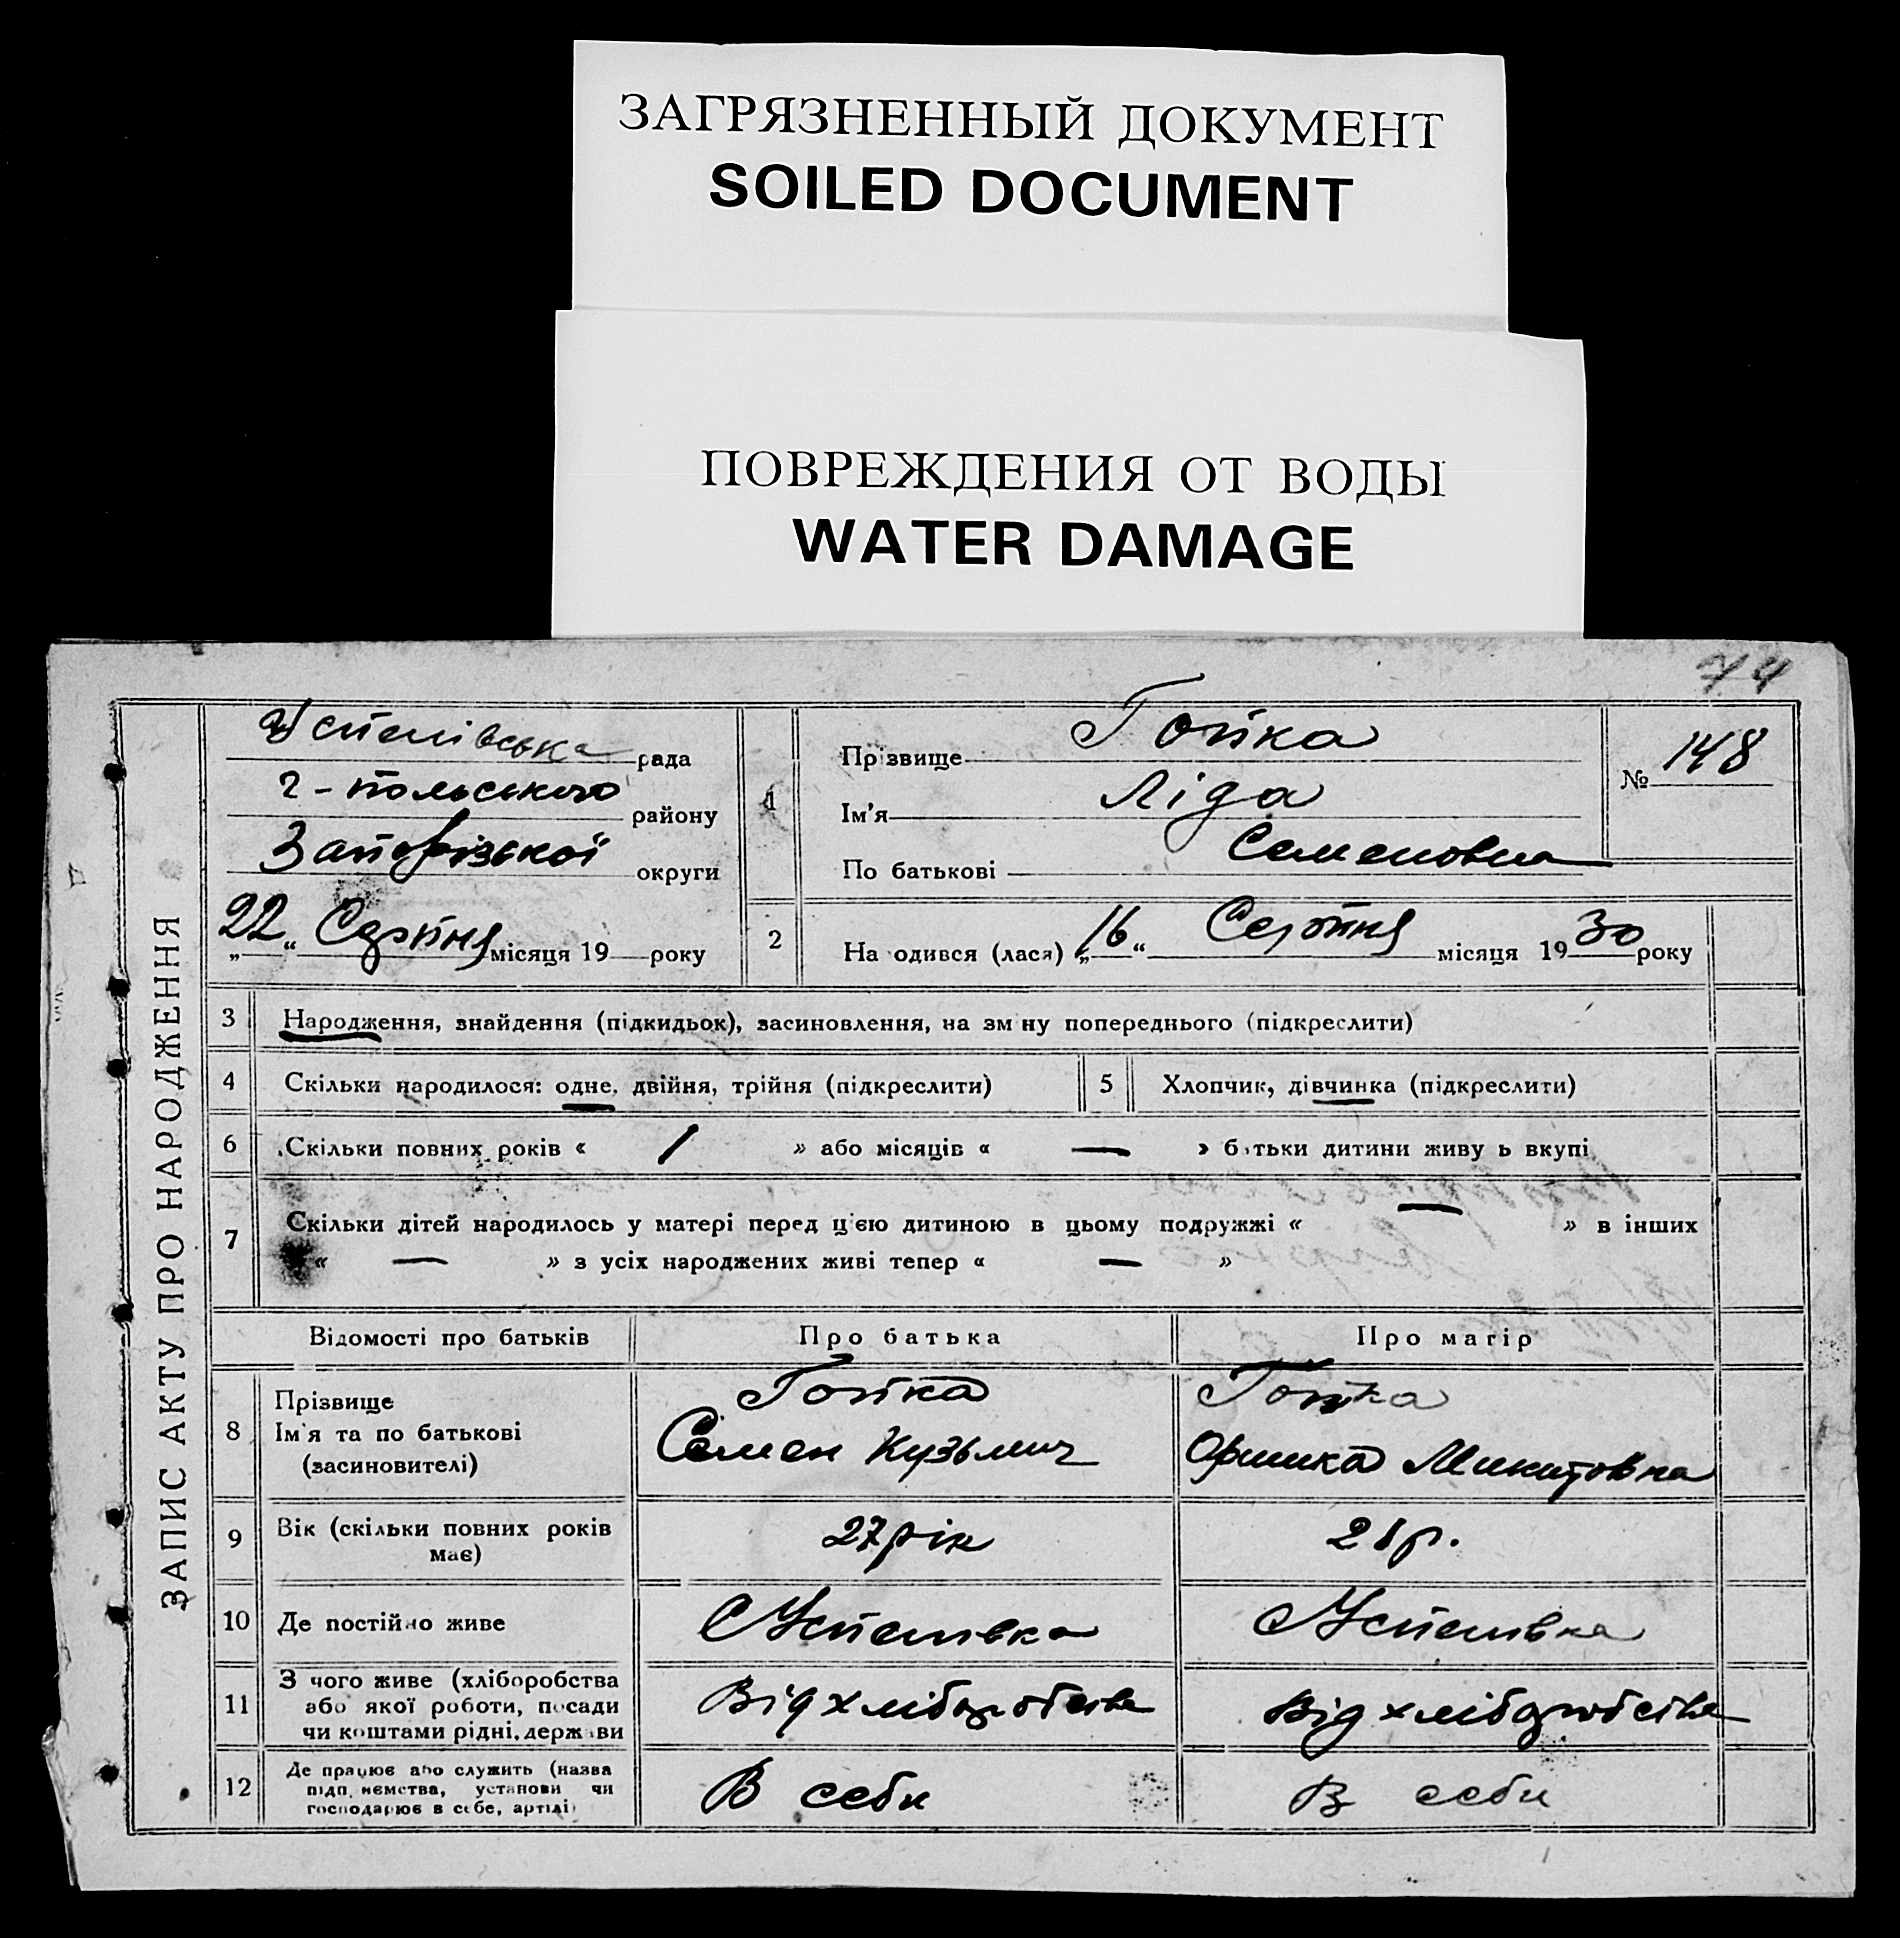 ЗАГРЯЗНЕННЫЙ ДОКУМЕНТ
SOILED DOCUMENT
ПОВРЕЖДЕНИЯ ОТ ВОДЫ
WATER DAMAGE
74
ЗАПИС АКТУ ПРО НАРОДЖЕННЯ
Успенівська рада
г-польського району
Запорізької округи
22 „ Серпня місяця 19 року
1
Прізвище Гопка
Ім'я Ліда
По батькові Семеновна
№ 148
2 На одився (лася) „16“ Серпня місяця 1930 року
3 Народження, знайдення (підкидьок), засиновлення, на зміну попереднього (підкреслити)
4 Скільки народилося: одне, двійня, трійня (підкреслити) 5 Хлопчик, дівчинка (підкреслити)
6 Скільки повних років « 1 » або місяців « — » батьки дитини живу ь вкупі
7 Скільки дітей народилось у матері перед цією дитиною в цьому подружжі « — » в інших
« — » з усіх народжених живі тепер « — »
Відомості про батьків Про батька Про матір
8 Прізвище Гопка Гопка
Ім'я та по батькові Семен Кузьмич Оришка Микитовна
(засиновителі)
9 Вік (скільки повних років має) 27 рік 21 р.
10 Де постійно живе С Успенівка С Успенівка
11 З чого живе (хліборобства
або якої роботи, посади Від хліборобства Від хліборобства
чи коштами рідні, держави
12 Де працює або служить (назва
підприємства, установи чи В себи В себи
господарює в себе, артілі)